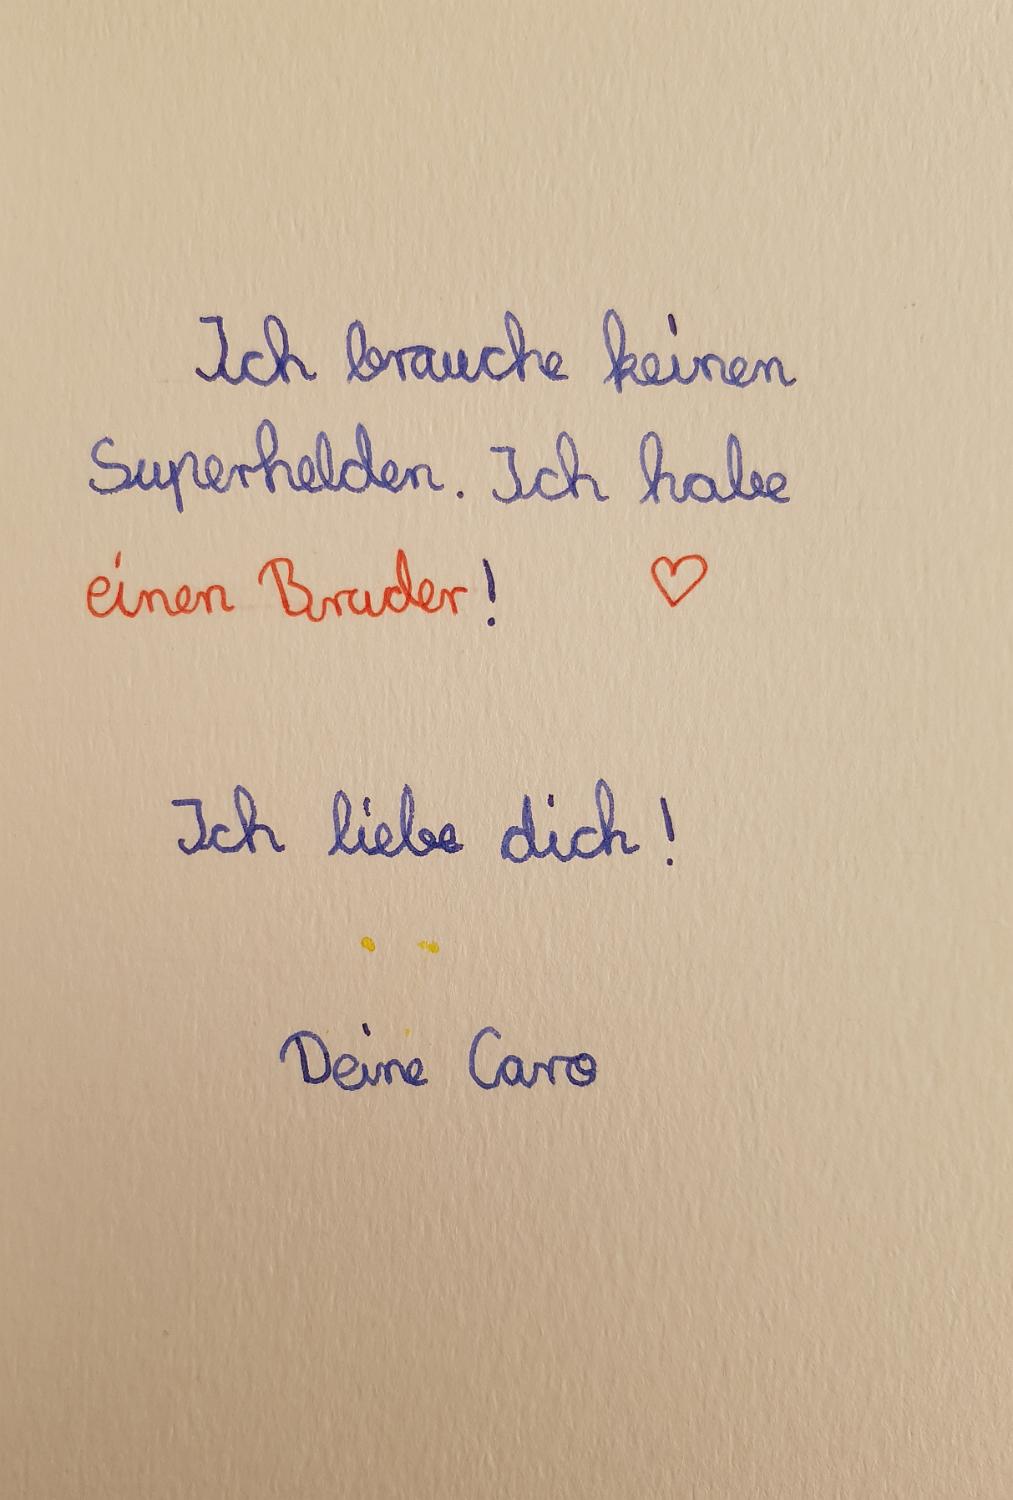 Ich brauche keinen
Superhelden. Ich habe
einen Bruder! ♡
Ich liebe dich!
Deine Caro